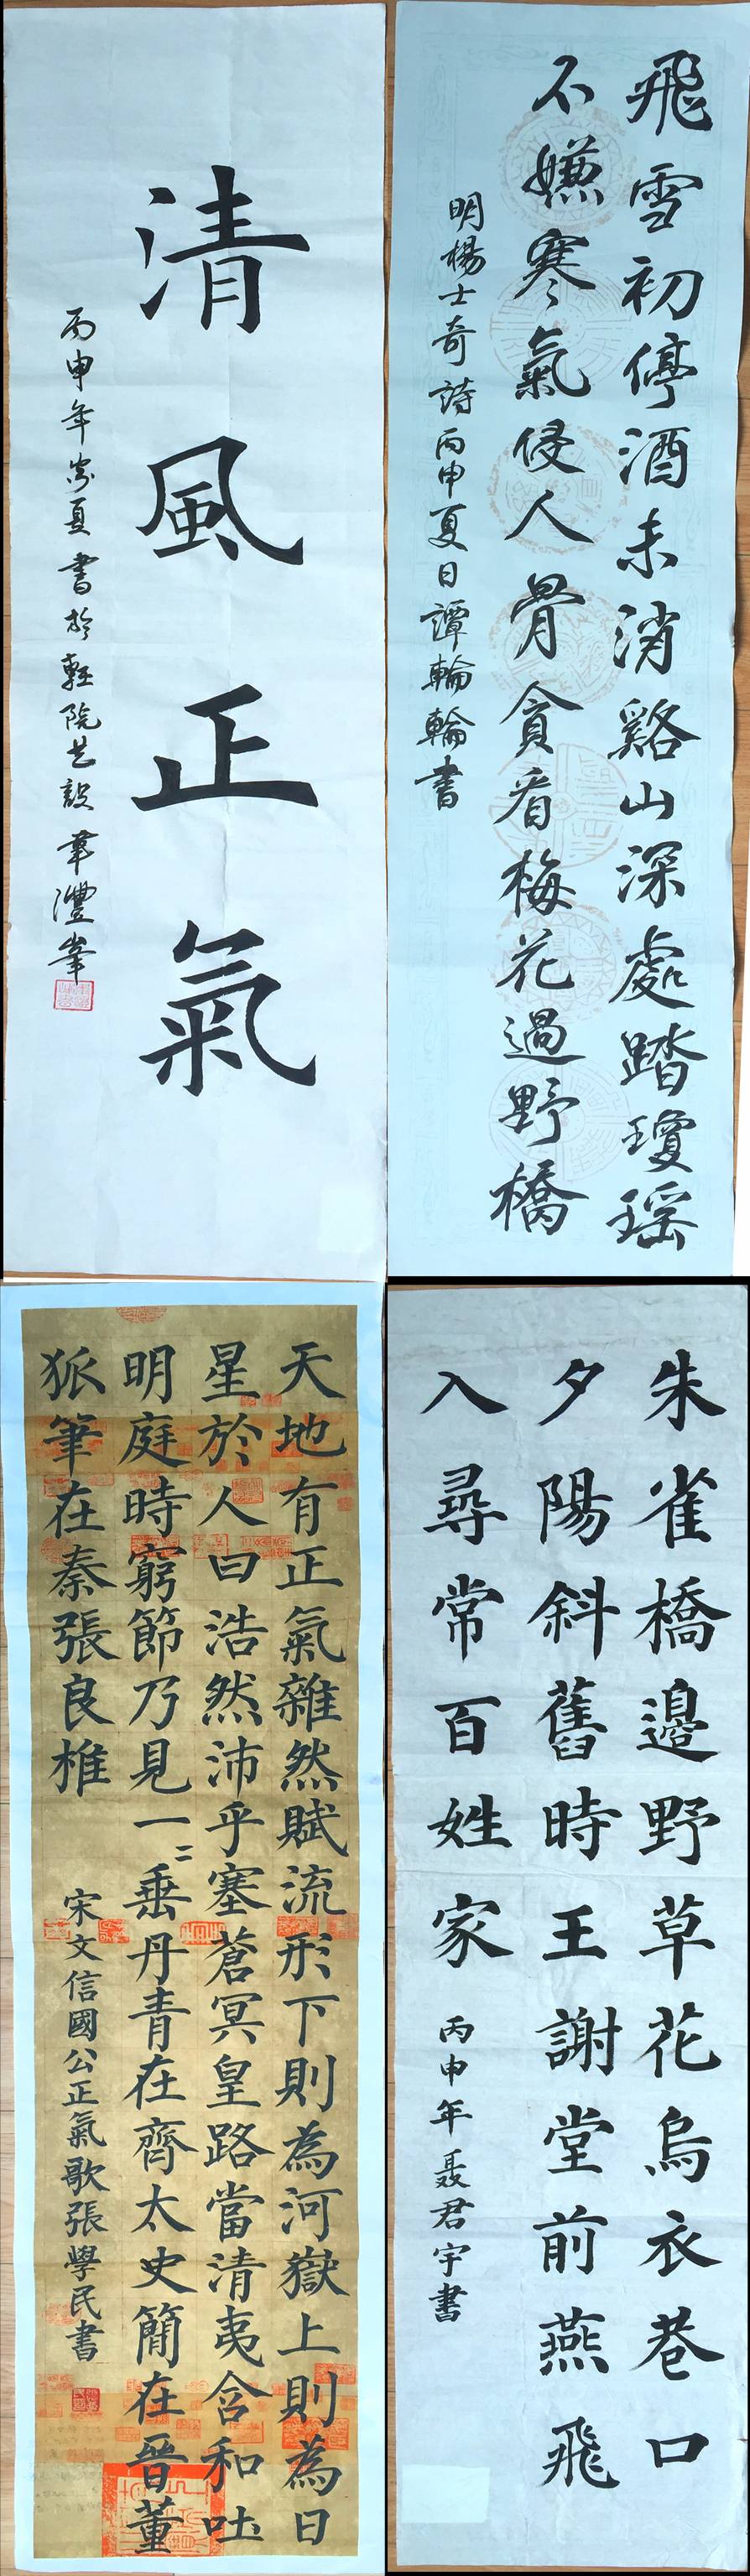 清風正氣
丙申年夏書於輕院艺設韋灃峯
飛雪初停酒未消谿山深處踏瓊瑶
不嫌寒氣侵人骨貪看梅花過野橋
明楊士奇詩丙申夏日譚輪輪書
天地有正氣雜然賦流形下則為河嶽上則為日
星於人曰浩然沛乎塞蒼冥皇路當清夷含和吐
明庭時窮節乃見一二垂丹青在齊太史簡在晉董
狐筆在秦張良椎
宋文信國公正氣歌張學民書
朱雀橋邊野草花烏衣巷口
夕陽斜舊時王謝堂前燕飛
入尋常百姓家
丙申年聂君宇書